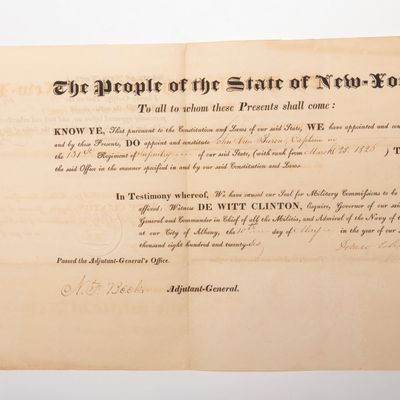 The People of the State of New-Yo
To all to whom these Presents shall come:
KNOW YE, That pursuant to the Constitution and Laws of our said State, WE have appointed and con
and by these Presents, DO appoint and constitute John Van Buren Captain in
the 151st Regiment of Infantry of our said State, (with rank from March 25. 1826) T
the said Office in the manner specified in and by our said Constitution and Laws.
In Testimony whereof, We have caused our Seal for Military Commissions to be
affixed: Witness DE WITT CLINTON, Esquire, Governor of our said
General and Commander in Chief of all the Militia, and Admiral of the Navy of t
at our City of Albany, the 10th day of May in the year of our
thousand eight hundred and twenty-Six
Passed the Adjutant-General's Office.
N. F. Beck Adjutant-General.